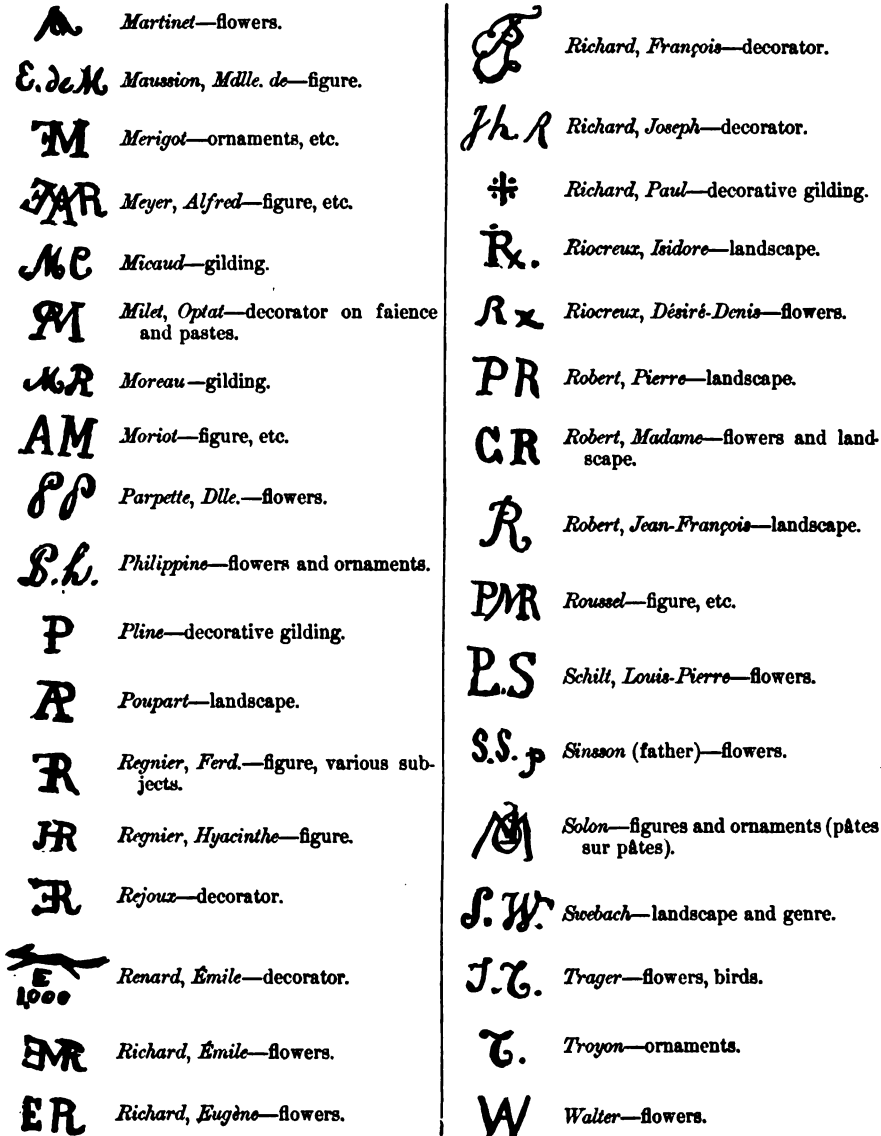 Martinet—flowers.
E. de M. Maussion, Mdlle. de—figure.
Merigot—ornaments, etc.
Meyer, Alfred—figure, etc.
MC Micaud—gilding.
Milet, Optat—decorator on faience
and pastes.
MR Moreau—gilding.
AM Moriot—figure, etc.
PP Parpette, Dlle.—flowers.
P.h. Philippine—flowers and ornaments.
P Pline—decorative gilding.
Poupart—landscape.
Regnier, Ferd.—figure, various sub-
jects.
HR Regnier, Hyacinthe—figure.
Rejoux—decorator.
E
1,000
Renard, Émile—decorator.
EMR Richard, Émile—flowers.
ER Richard, Eugène—flowers.
Richard, François—decorator.
Jh. R Richard, Joseph—decorator.
Richard, Paul—decorative gilding.
Rx. Riocreux, Isidore—landscape.
Rx Riocreux, Désiré-Denis—flowers.
PR Robert, Pierre—landscape.
C.R Robert, Madame—flowers and land-
scape.
R Robert, Jean-François—landscape.
PMR Roussel—figure, etc.
P.S Schilt, Louis-Pierre—flowers.
S.S. p Sinsson (father)—flowers.
Solon—figures and ornaments (pâtes
sur pâtes).
S. W. Swebach—landscape and genre.
J.T. Trager—flowers, birds.
T. Troyon—ornaments.
W Walter—flowers.